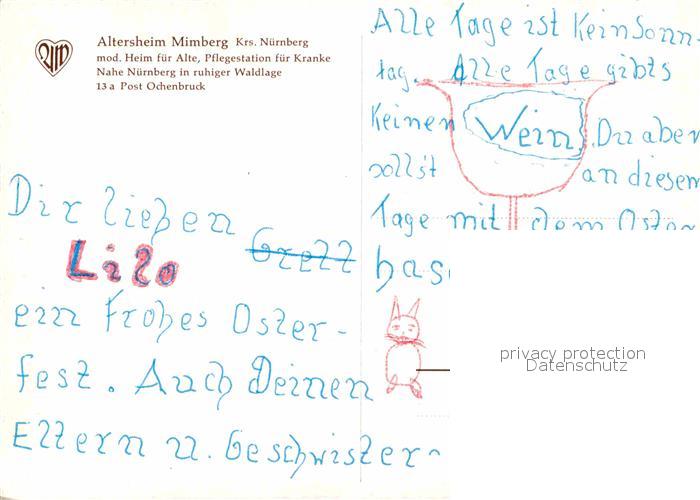 Altersheim Mimberg Krs. Nürnberg
mod. Heim für Alte, Pflegestation für Kranke
Nahe Nürnberg in ruhiger Waldlage
13 a Post Ochenbruck
Dir lieben Grett
Lilo
ein frohes Oster-
fest. Auch Deinen
Eltern u. Geschwister
Alle Tage ist Kein Sonn-
tag. Alle Tage gibts
Keinen Wein. Du aber
sollst an diesem
Tage mit dem Oster
has
privacy protection
Datenschutz